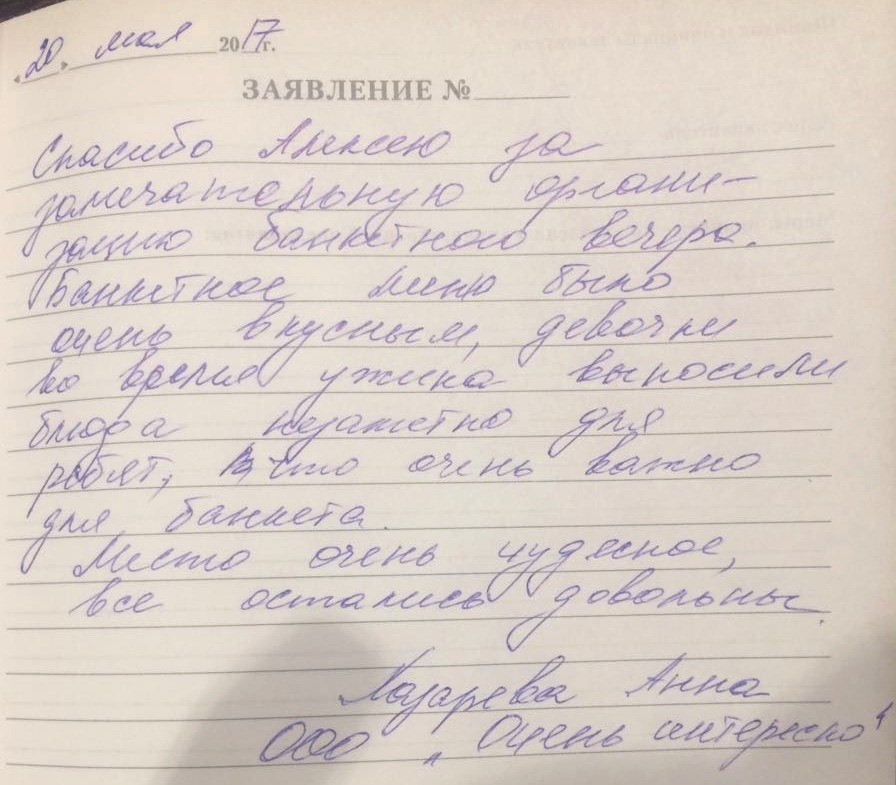 „20" мая 2017г.
ЗАЯВЛЕНИЕ №
Спасибо Алексею за
замечательную органи-
зацию банкетного вечера.
Банкетное меню было
очень вкусным, девочки
во время ужина выносили
блюда незаметно для
ребят, что очень важно
для банкета.
Место очень чудесное,
все остались довольны.
Назарева Анна
ООО „Очень интересно"